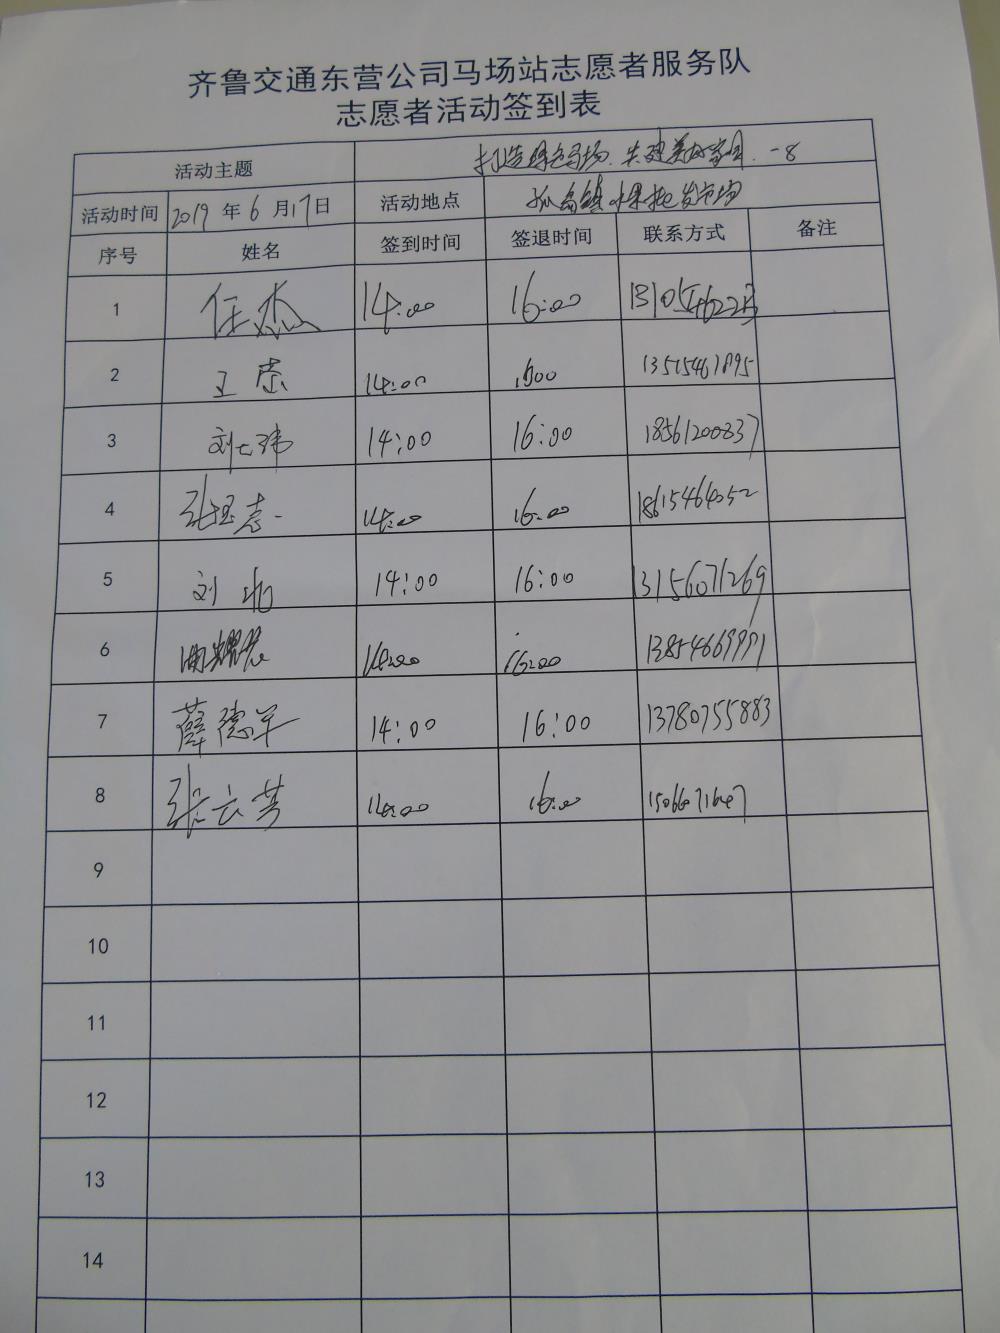 齐鲁交通东营公司马场站志愿者服务队
志愿者活动签到表
活动主题 打造绿色马场.共建美好家园.-8
活动时间 2019年6月17日 活动地点 孤岛镇水果批发市场
序号 姓名 签到时间 签退时间 联系方式 备注
1 任杰 14:00 16:00
2 王 14:00 1600 13515461895
3 刘 14:00 16:00 18561200837
4 张 志 14:00 16:00 18615464052
5 刘 14:00 16:00 13156071269
6 14:00 16:00 13854669991
7 薛德军 14:00 16:00 13780755883
8 张云芳 14:00 16:00 15066071647
9
10
11
12
13
14